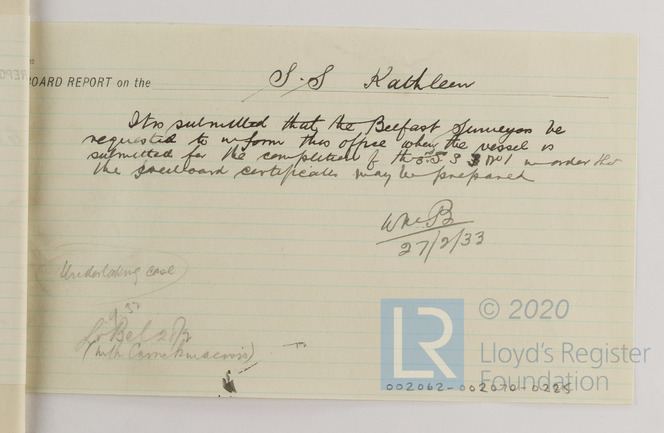 BOARD REPORT on the S.S Kathleen
It is submitted that the Belfast Surveyors be
requested to inform this office when the vessel is
submitted for the completion of the S S No 1 in order that
the freeboard certificates may be prepared
27/2/33
Undertaking case
Lr Bel 28/2
LR
© 2020
Lloyd's Register
Foundation
002062-002070-0225